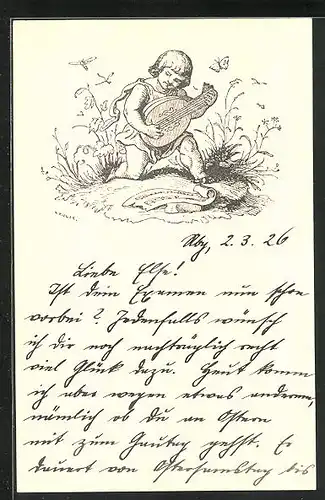 Abg, 2.3.26
Liebe Else!
Ist dein Examen nun schon
vorbei? Jedenfalls wünsch
ich dir noch nachträglich recht
viel Glück dazu. Heut komm
ich aber wegen etwas anderem,
nämlich ob du an Ostern
mit zum Gautag gehst. Er
dauert von Ostersamstag bis